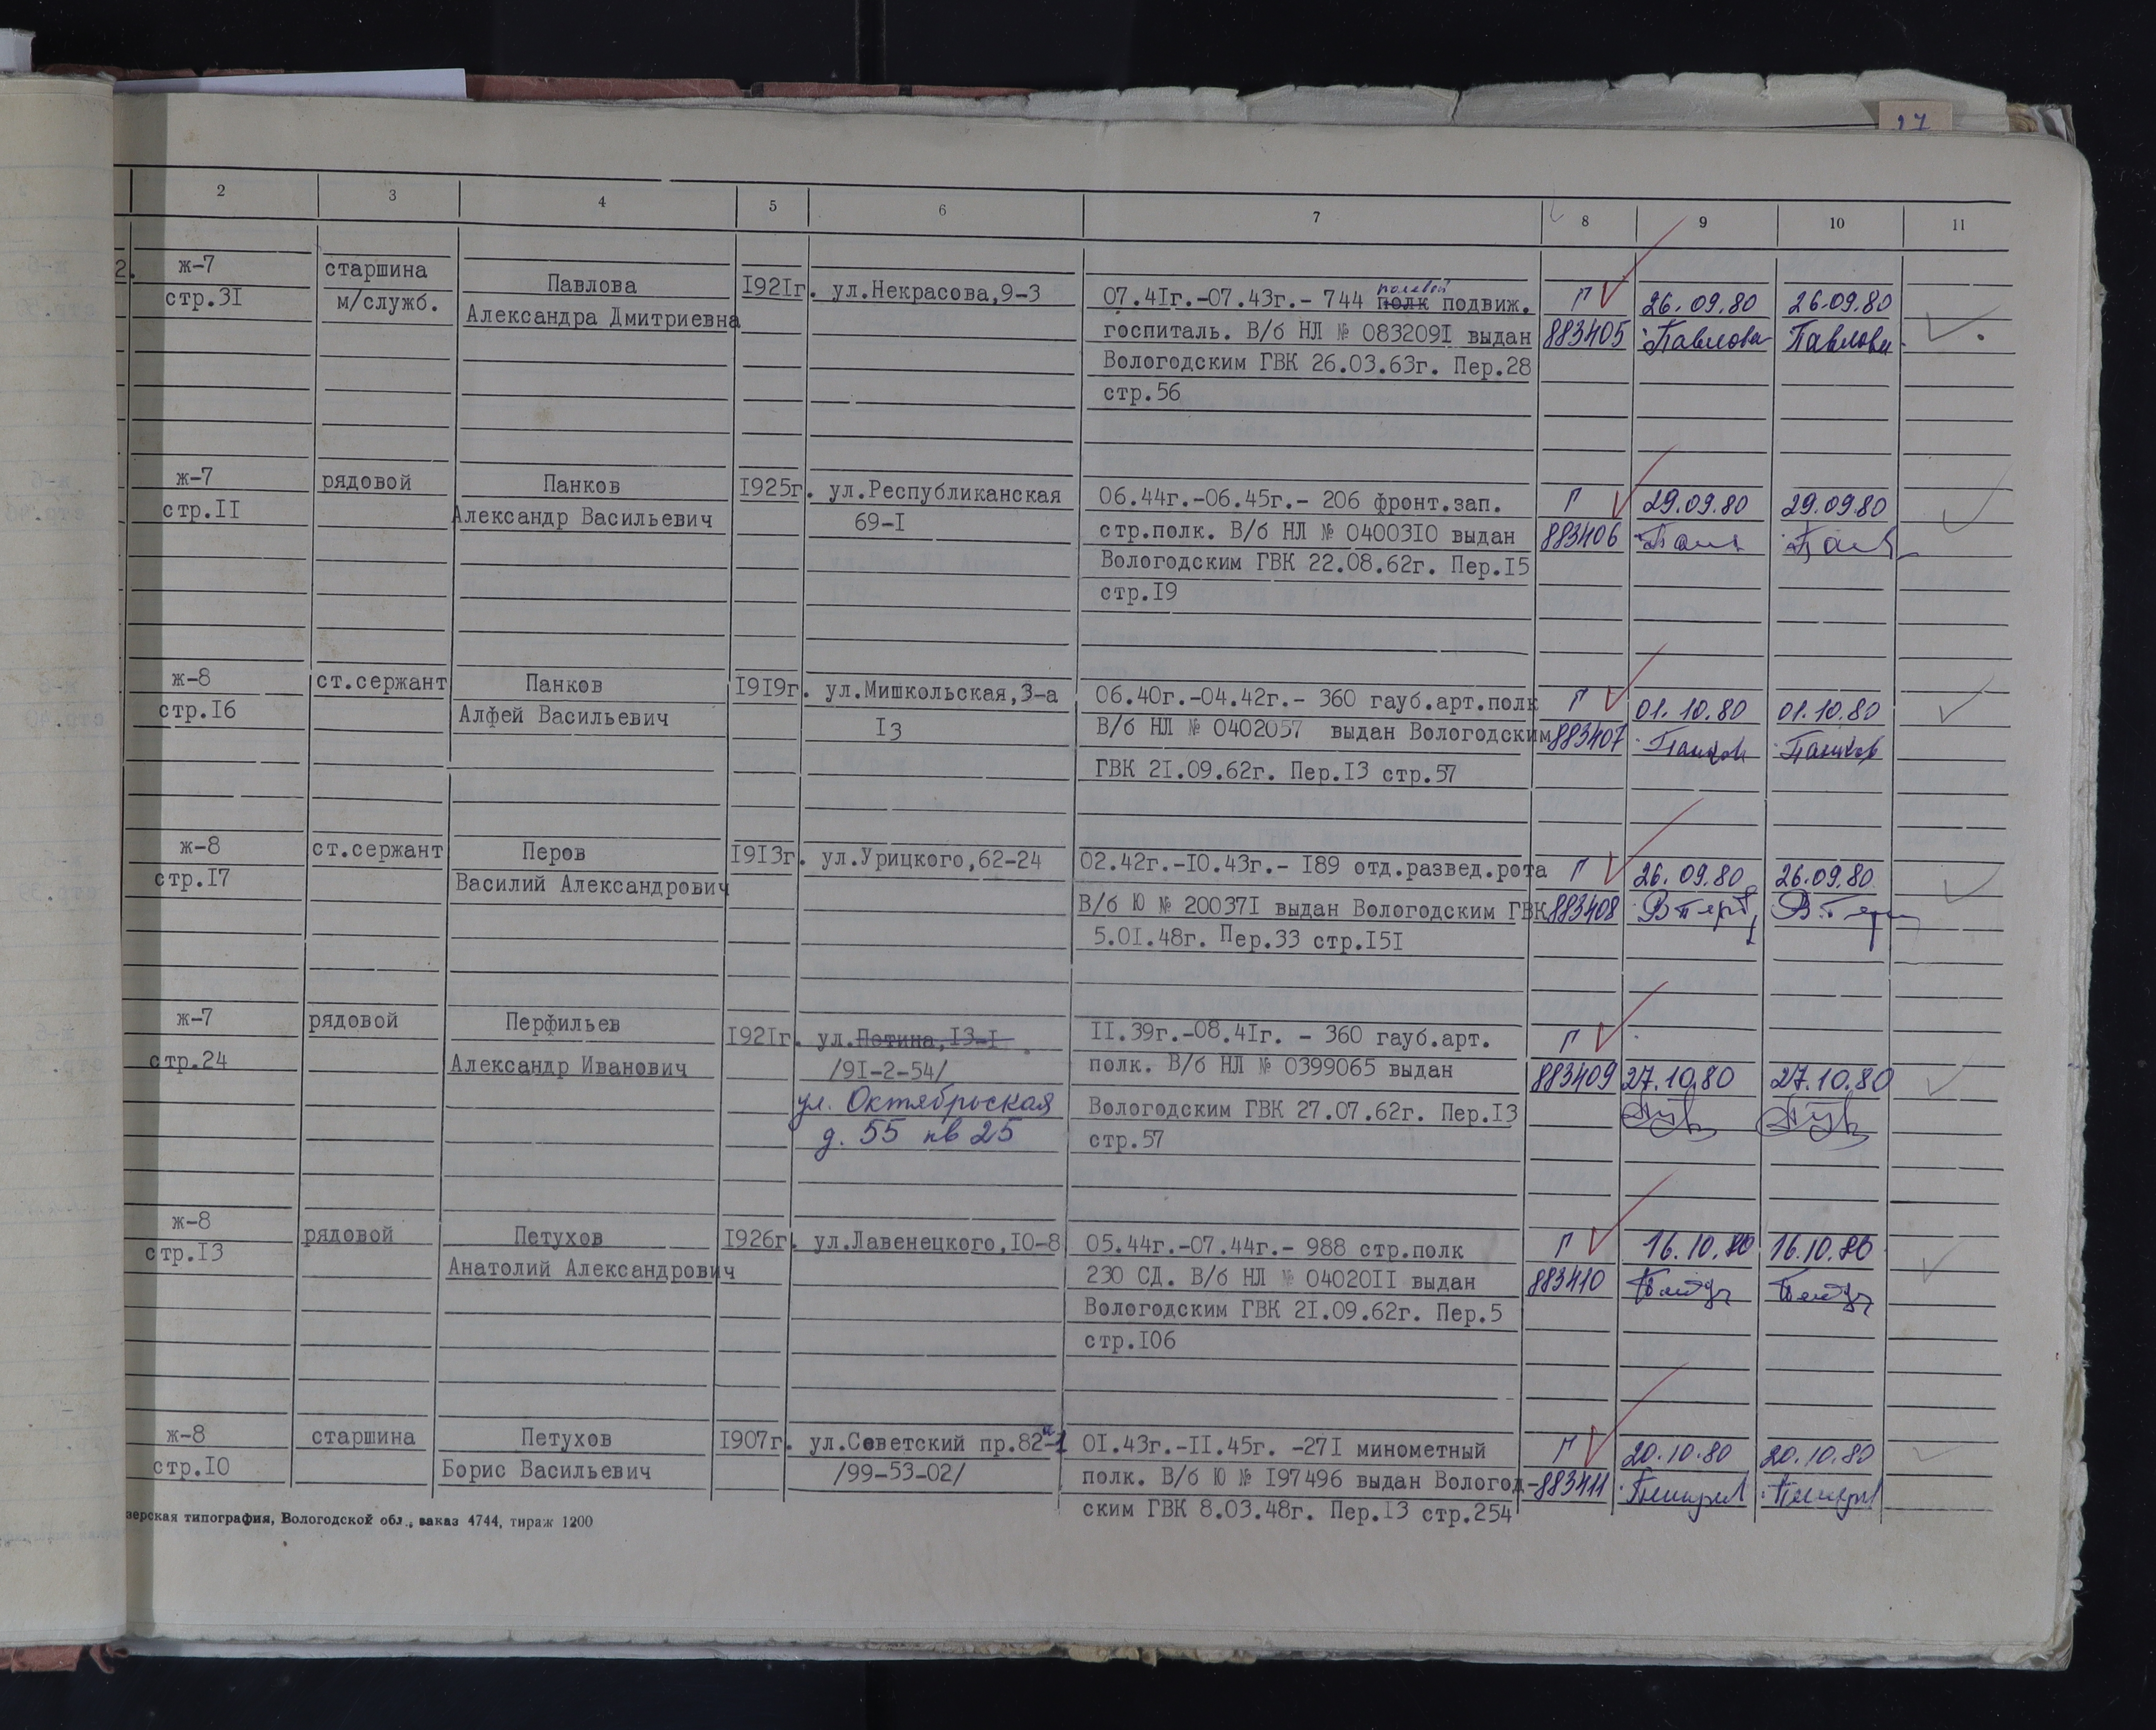 27
2 3 4 5 6 7 8 9 10 11
2. ж-7 старшина Павлова 1921г. ул.Некрасова,9-3 07.41г.-07.43г.- 744 полк полевой подвиж. Г 26.09.80 26.09.80
стр.31 м/служб. Александра Дмитриевна госпиталь. В/б НЛ № 0832091 выдан 883405 Павлова Павлова
Вологодским ГВК 26.03.63г. Пер.28
стр.56
ж-7 рядовой Панков 1925г. ул.Республиканская 06.44г.-06.45г.- 206 фронт.зап. Г 29.09.80 29.09.80
стр.11 Александр Васильевич 69-1 стр.полк. В/б НЛ № 0400310 выдан 883406
Вологодским ГВК 22.08.62г. Пер.15
стр.19
ж-8 ст.сержант Панков 1919г. ул.Мишкольская,3-а 06.40г.-04.42г.- 360 гауб.арт.полк Г 01.10.80 01.10.80
стр.16 Алфей Васильевич 13 В/б НЛ № 0402057 выдан Вологодским 883407 Панков Панков
ГВК 21.09.62г. Пер.13 стр.57
ж-8 ст.сержант Перов 1913г. ул.Урицкого,62-24 02.42г.-10.43г.- 189 отд.развед.рота Г 26.09.80 26.09.80
стр.17 Василий Александрович В/б Ю № 200371 выдан Вологодским ГВК 883408
5.01.48г. Пер.33 стр.151
ж-7 рядовой Перфильев 1921г. ул.Петина,13-1 11.39г.-08.41г. - 360 гауб.арт. Г
стр.24 Александр Иванович /91-2-54/ полк. В/б НЛ № 0399065 выдан 883409 27.10.80 27.10.80
ул. Октябрьская Вологодским ГВК 27.07.62г. Пер.13
д. 55 кв 25 стр.57
ж-8 рядовой Петухов 1926г. ул.Лавенецкого,10-8 05.44г.-07.44г.- 988 стр.полк Г 16.10.80 16.10.80
стр.13 Анатолий Александрович 230 СД. В/б НЛ № 0402011 выдан 883410
Вологодским ГВК 21.09.62г. Пер.5
стр.106
ж-8 старшина Петухов 1907г. ул.Советский пр.82а-1 01.43г.-11.45г. -271 минометный Г 20.10.80 20.10.80
стр.10 Борис Васильевич /99-53-02/ полк. В/б Ю № 197496 выдан Вологод- 883411
ским ГВК 8.03.48г. Пер.13 стр.254
зерская типография, Вологодской обл., заказ 4744, тираж 1200